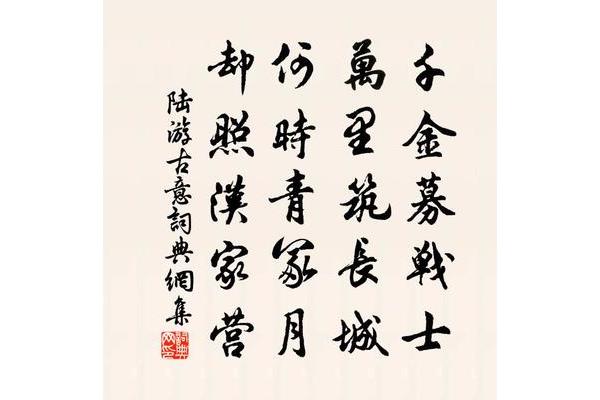 千金募戰士
萬里筑長城
何時青冢月
却照漢家营
陆游古意詞典網集
詞典网